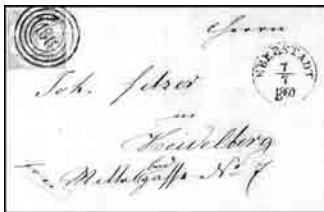 Herrn
EBERSTADT
7
7
1860
Joh.
in
Heidelberg
Mittelgasse No 7